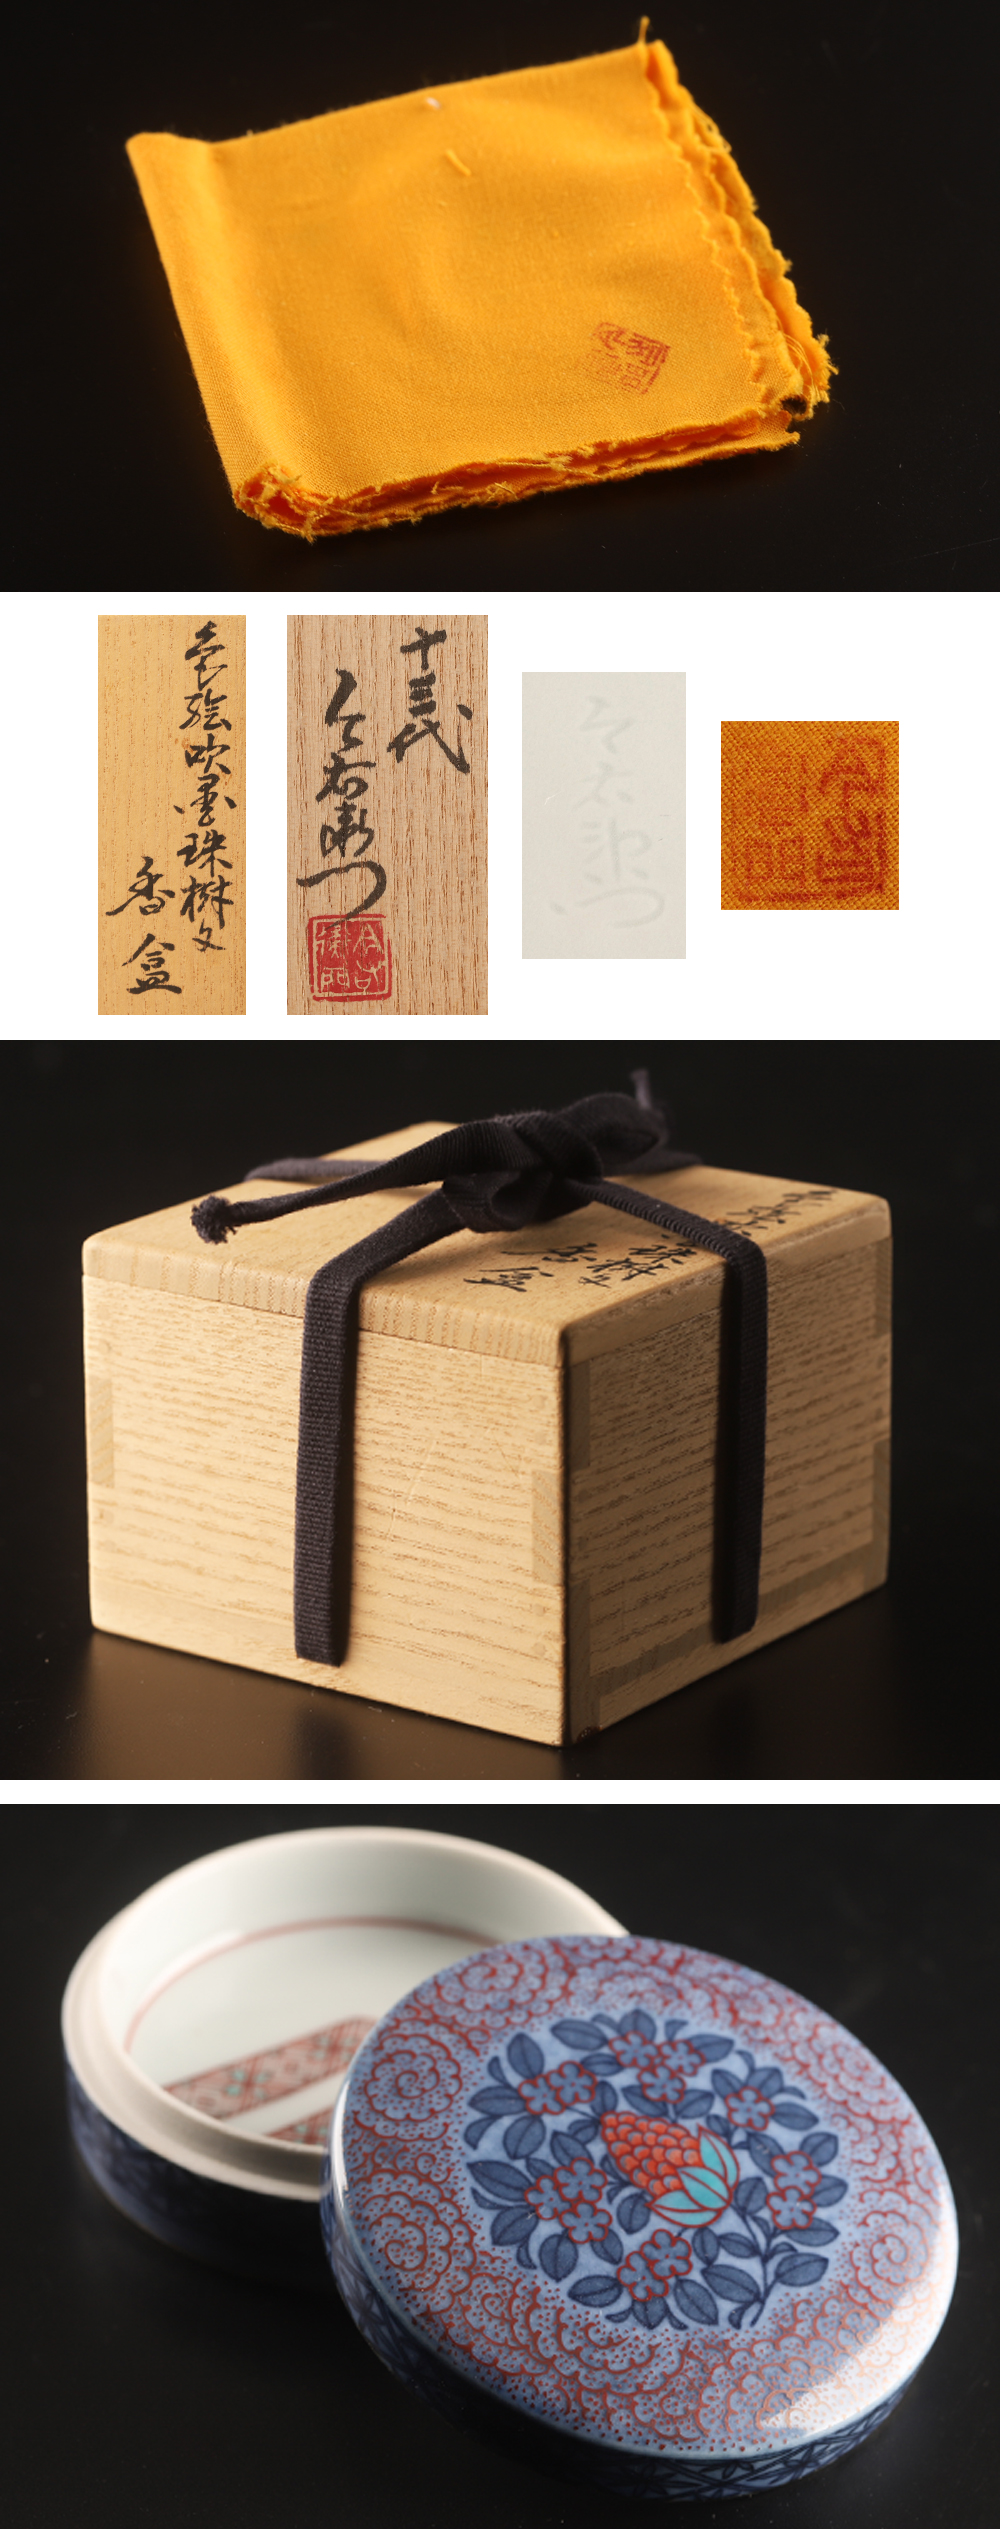 色絵吹墨珠樹文
香盒
十三代
今右衛門
今右衛門